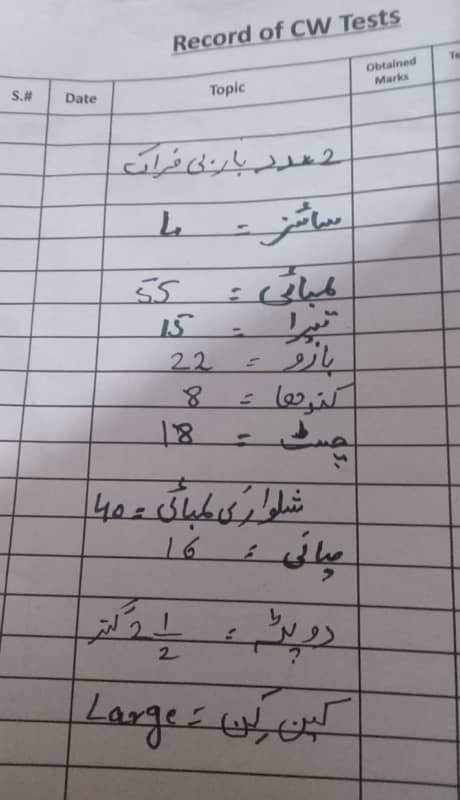 Record of CW Tests
S.# Date Topic Obtained Marks Te
2 عدد باربی فراک
سائز = L
لمبائی = 55
تیرا = 15
بازو = 22
کندھا = 8
چسٹ = 18
شلوار کی لمبائی = 40
پانی = 16
دوپٹہ = 2 1/2 گز
کین کین = Large